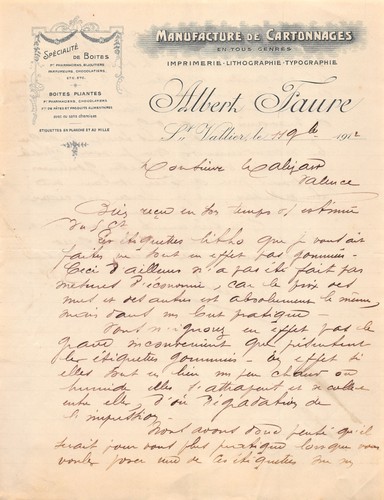 SPÉCIALITÉ
DE BOITES
Pr PHARMACIENS, BIJOUTIERS
PARFUMEURS, CHOCOLATIERS
ETC. ETC.
BOITES PLIANTES
Pr PHARMACIENS, CHOCOLATIERS
ETIQUETTES EN PLANCHE ET AU MILLE
MANUFACTURE DE CARTONNAGES
EN TOUS GENRES
IMPRIMERIE - LITHOGRAPHIE - TYPOGRAPHIE
Albert Faure
St Vallier, le 9bre 1912
Monsieur
Valence
Bien reçu en son temps v/ estimée
Les étiquettes litho que je vous ai
faites ne sont en effet pas gommées.
Ceci d'ailleurs n'a pas été fait par
mesures d'économie, car le prix des
unes et des autres est absolument le même,
mais dans un but pratique.
Vous n'ignorez en effet pas le
grave inconvénient que présentent
les étiquettes gommées. En effet si
elles sont en lieu un peu chaud ou
humide elles s'attrapent et se collent
entre elles, d'où dégradation de
l'impression.
Nous avons donc pensé qu'il
serait pour vous plus pratique lorsque vous
voulez poser une de ces étiquettes